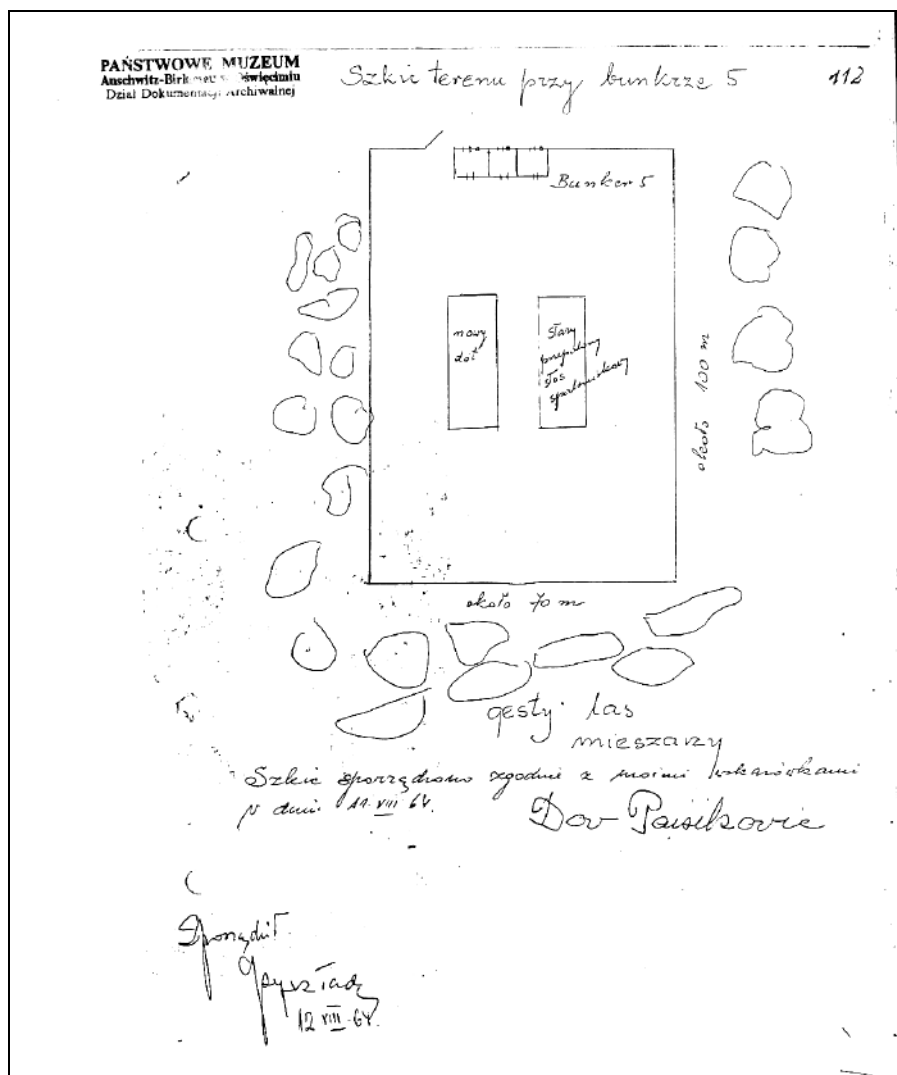 PAŃSTWOWE MUZEUM
Auschwitz-Birkenau w Oświęcimiu
Dział Dokumentacji Archiwalnej
Szkic terenu przy bunkrze 5
112
Bunker 5
nowy
dół
stary
stos
około 100 m
około 70 m
gęsty las
mieszany
Szkic sporządzono zgodnie z moimi wskazówkami
w dniu 11 VIII 64.
Dov Paisikovic
Sporządził
12 VIII 64.